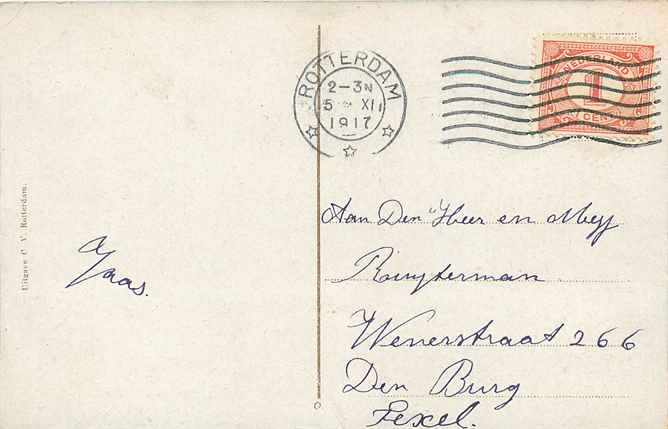 ROTTERDAM
2-3N
5 XII
1917
NEDERLAND
1
CENT
Aan Den Heer en Mej
Ruyterman
Weverstraat 266
Den Burg
Texel.
Jaas.
Uitgave C. V. Rotterdam.